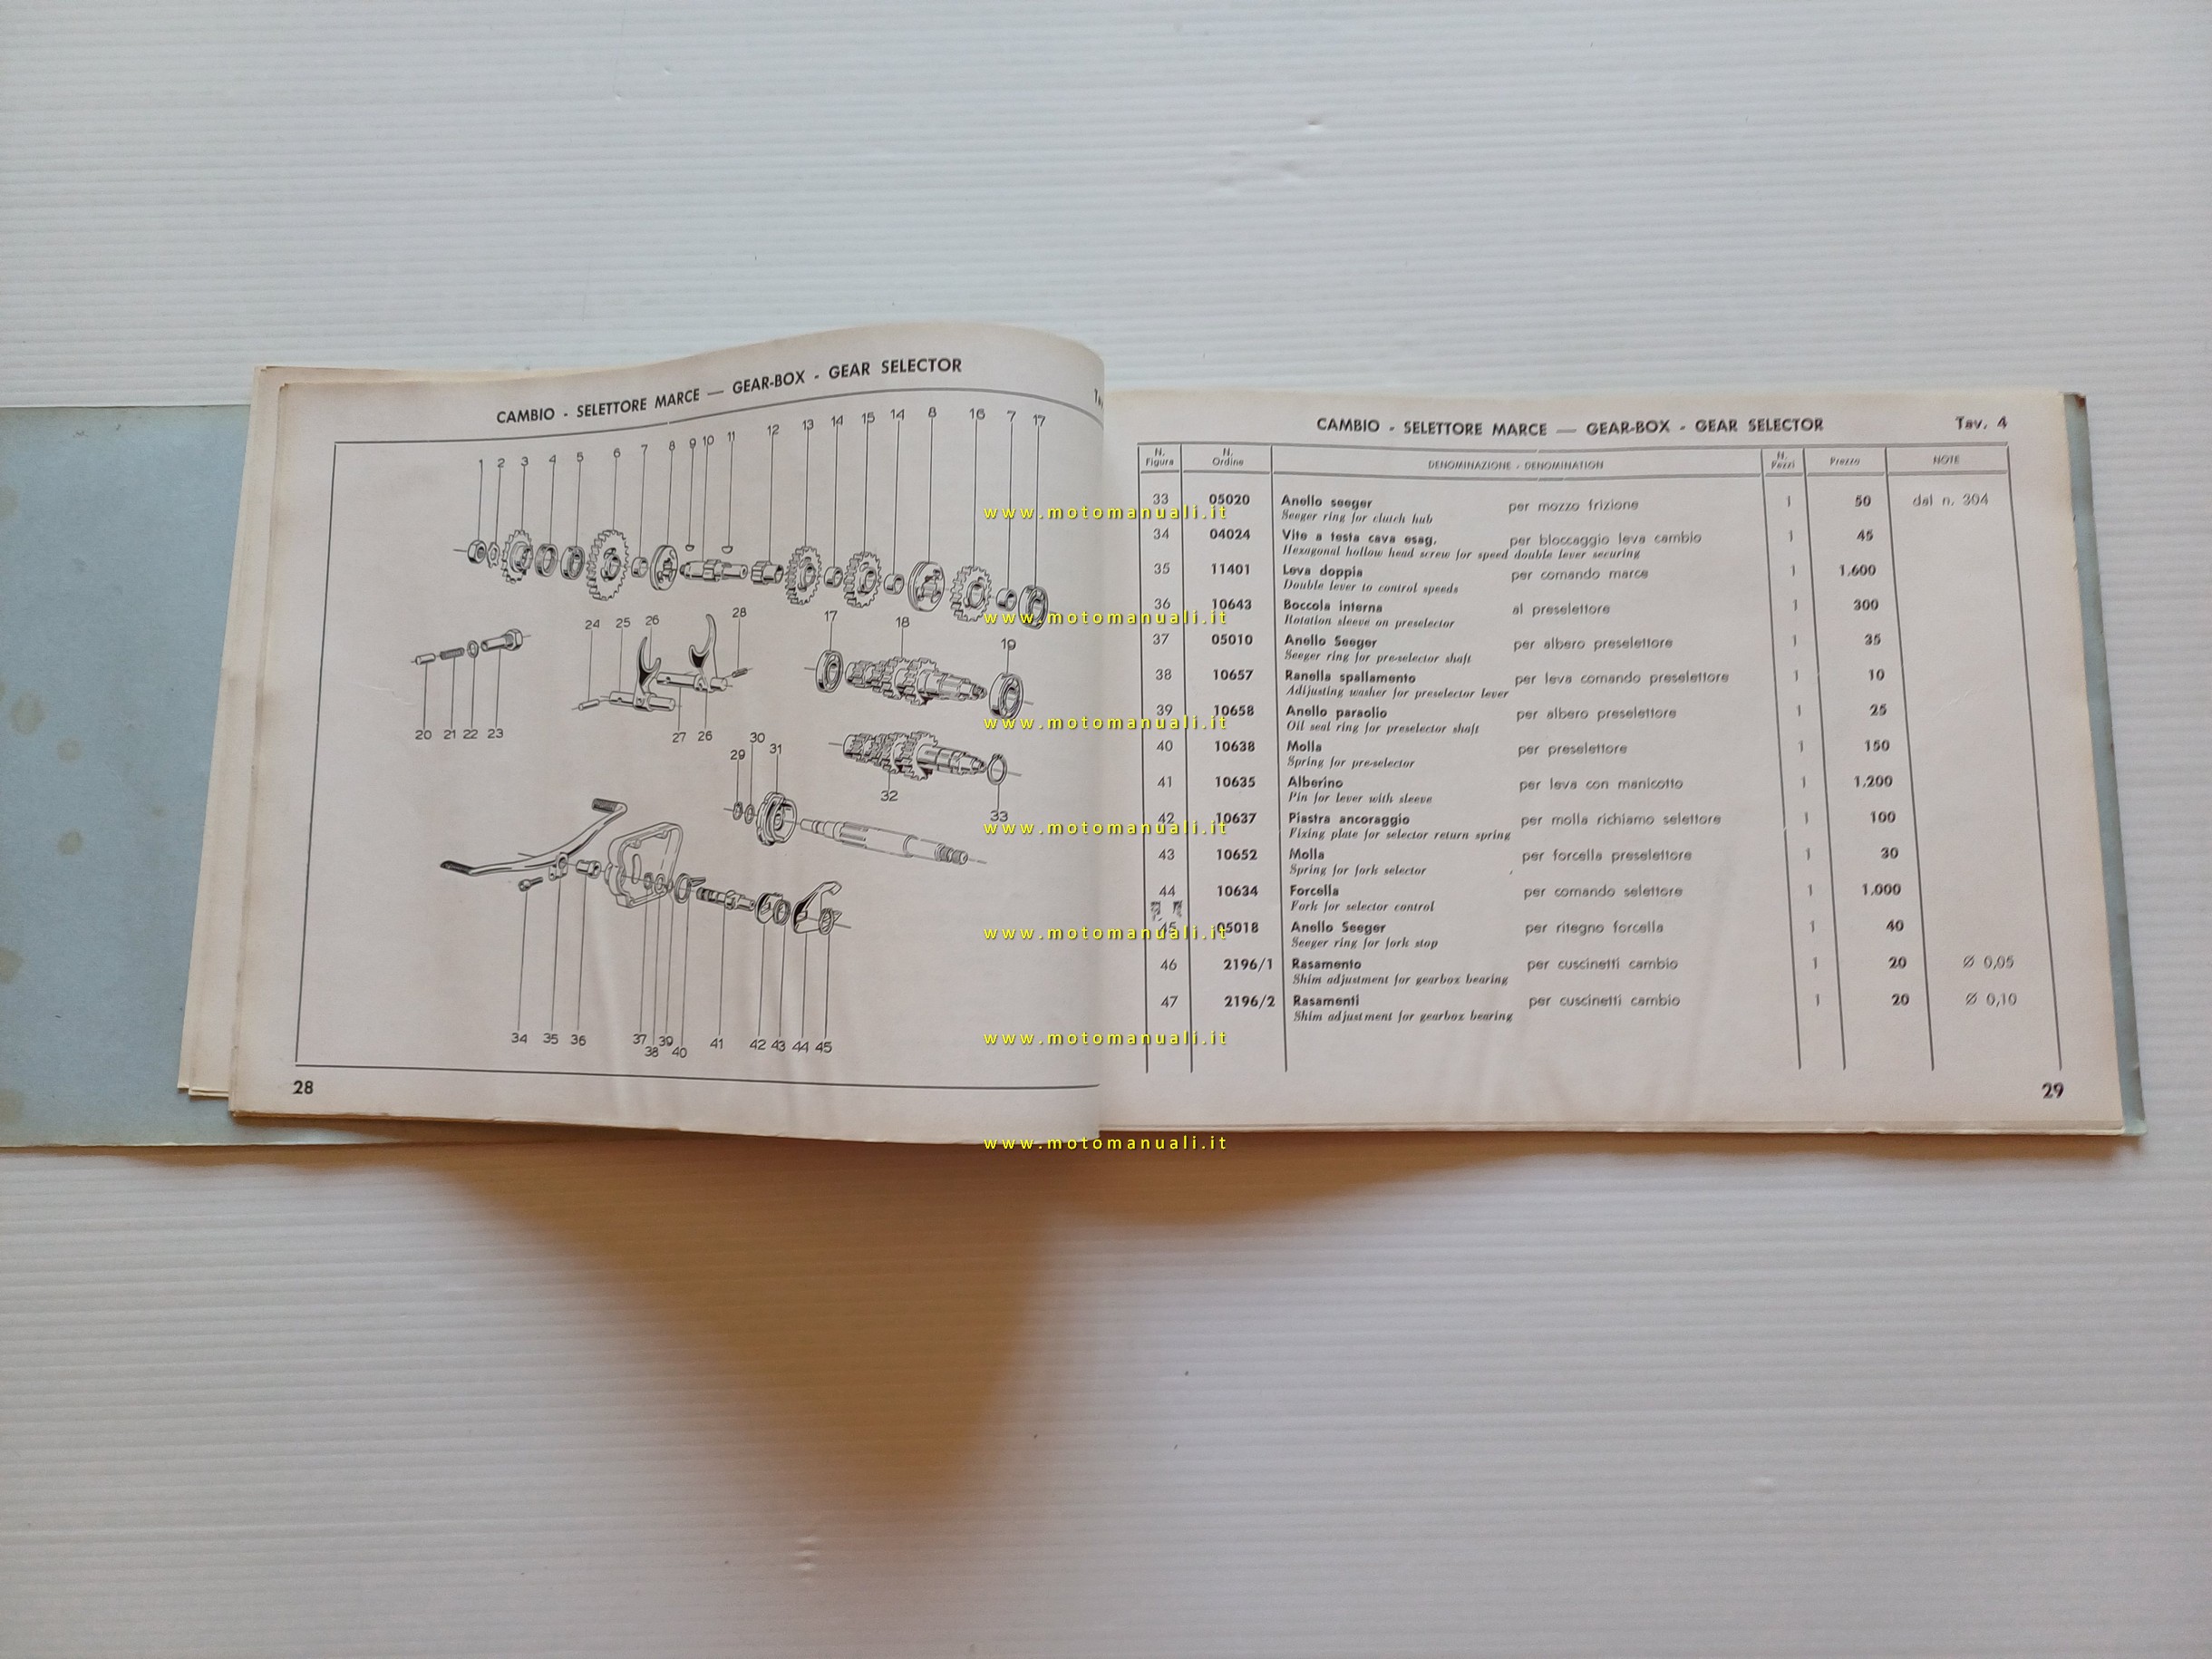 CAMBIO - SELETTORE MARCE — GEAR-BOX - GEAR SELECTOR
1 2 3 4 5 6 7 8 9 10 11 12 13 14 15 14 8 16 7 17
24 25 26 28 17 18 19
20 21 22 23 27 26
29 30 31 32 33
34 35 36 37 38 39 40 41 42 43 44 45
28
CAMBIO - SELETTORE MARCE — GEAR-BOX - GEAR SELECTOR Tav. 4
N. Figura N. Ordine DENOMINAZIONE - DENOMINATION N. Pezzi Prezzo NOTE
33 05020 Anello seeger per mozzo frizione 1 50 dal n. 304
Seeger ring for clutch hub
34 04024 Vite a testa cava esag. per bloccaggio leva cambio 1 45
Hexagonal hollow head screw for speed double lever securing
35 11401 Leva doppia per comando marce 1 1.600
Double lever to control speeds
36 10643 Boccola interna al preselettore 1 300
Rotation sleeve on preselector
37 05010 Anello Seeger per albero preselettore 1 35
Seeger ring for pre-selector shaft
38 10657 Ranella spallamento per leva comando preselettore 1 10
Adijusting washer for preselector lever
39 10658 Anello paraolio per albero preselettore 1 25
Oil seal ring for preselector shaft
40 10638 Molla per preselettore 1 150
Spring for pre-selector
41 10635 Alberino per leva con manicotto 1 1.200
Pin for lever with sleeve
42 10637 Piastra ancoraggio per molla richiamo selettore 1 100
Fixing plate for selector return spring
43 10652 Molla per forcella preselettore 1 30
Spring for fork selector
44 10634 Forcella per comando selettore 1 1.000
Fork for selector control
45 05018 Anello Seeger per ritegno forcella 1 40
Seeger ring for fork stop
46 2196/1 Rasamento per cuscinetti cambio 1 20 Ø 0,05
Shim adjustment for gearbox bearing
47 2196/2 Rasamenti per cuscinetti cambio 1 20 Ø 0,10
Shim adjustment for gearbox bearing
29
www.motomanuali.it
www.motomanuali.it
www.motomanuali.it
www.motomanuali.it
www.motomanuali.it
www.motomanuali.it
www.motomanuali.it